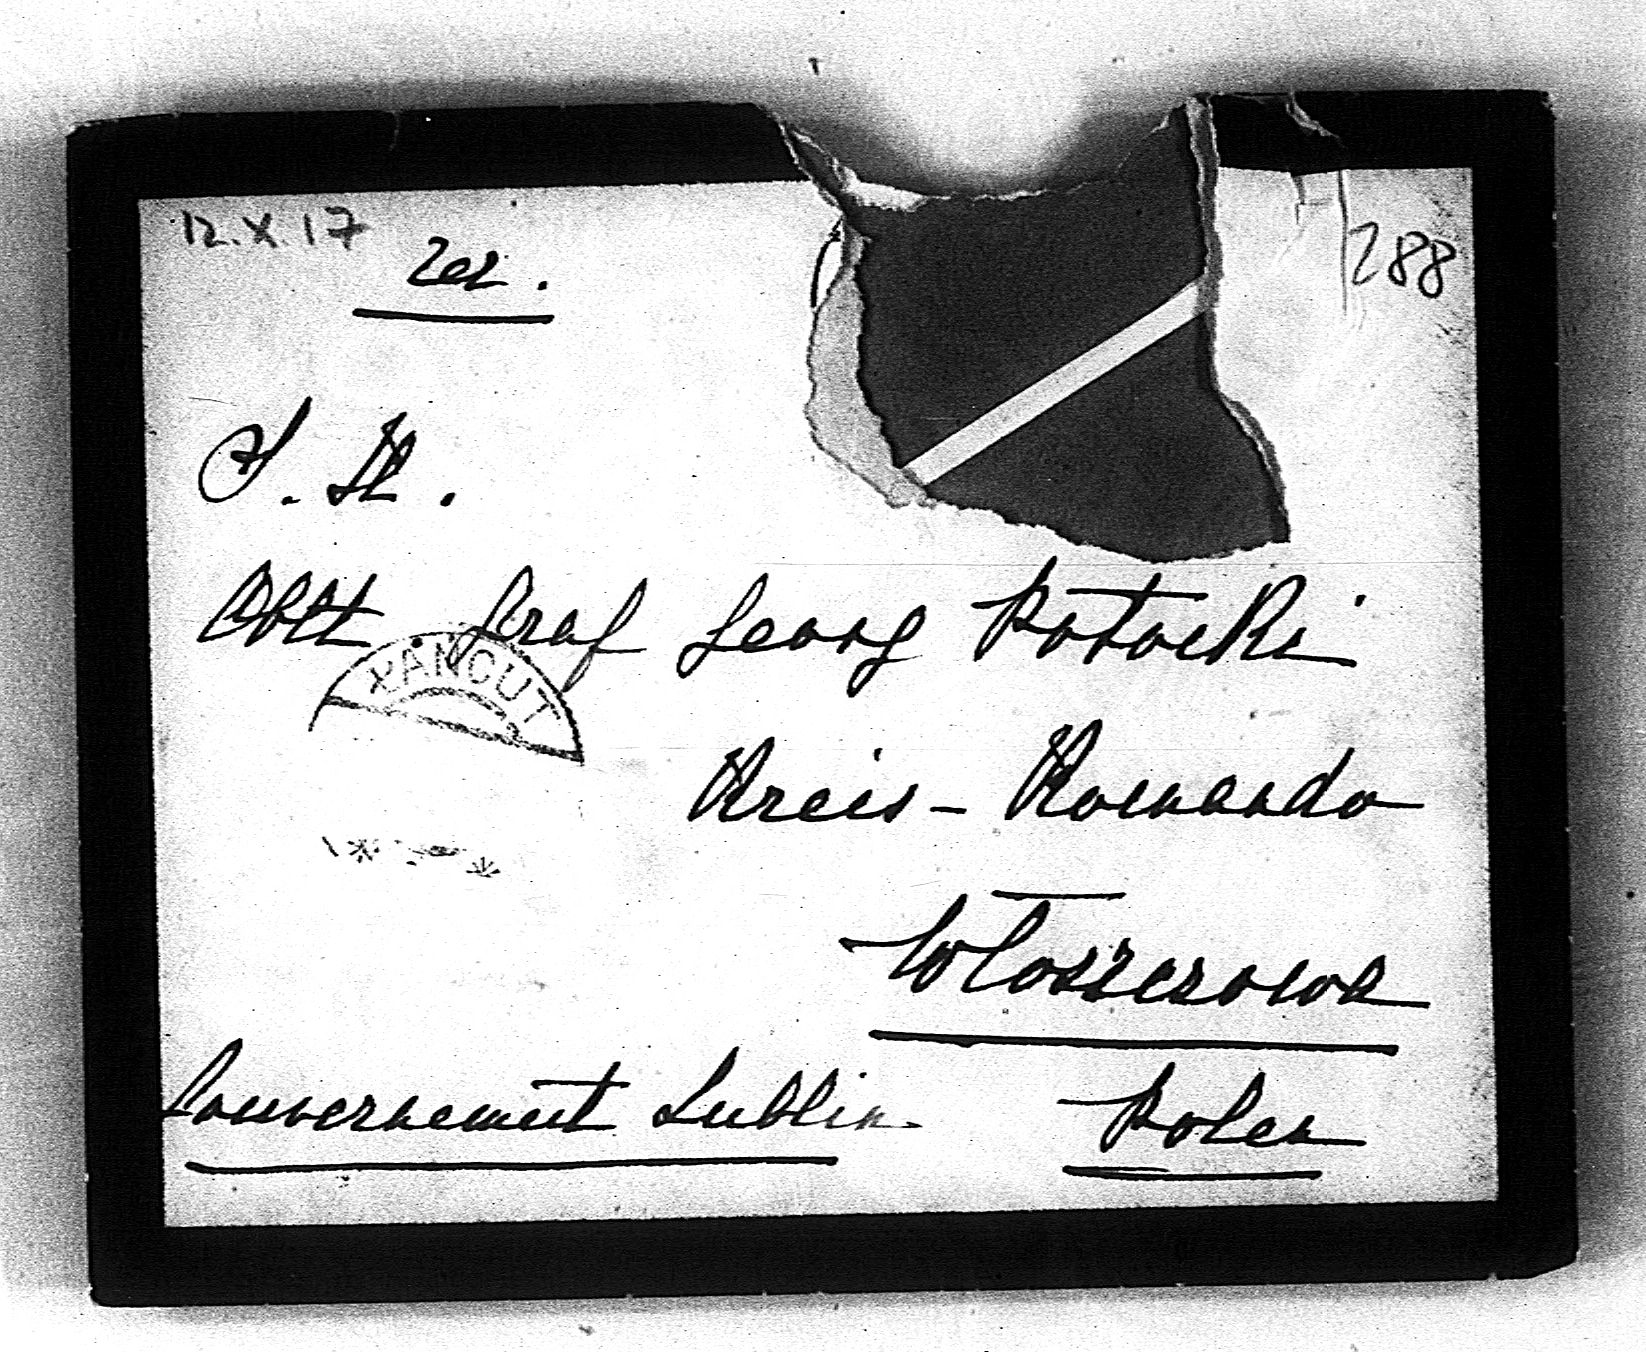 12.X.17
288
rec.
S. H.
Oblt. Graf Georg Potocki
ŁAŃCUT
Kreis - Komando
Wloszczowa
Gouvernement Lublin
Polen